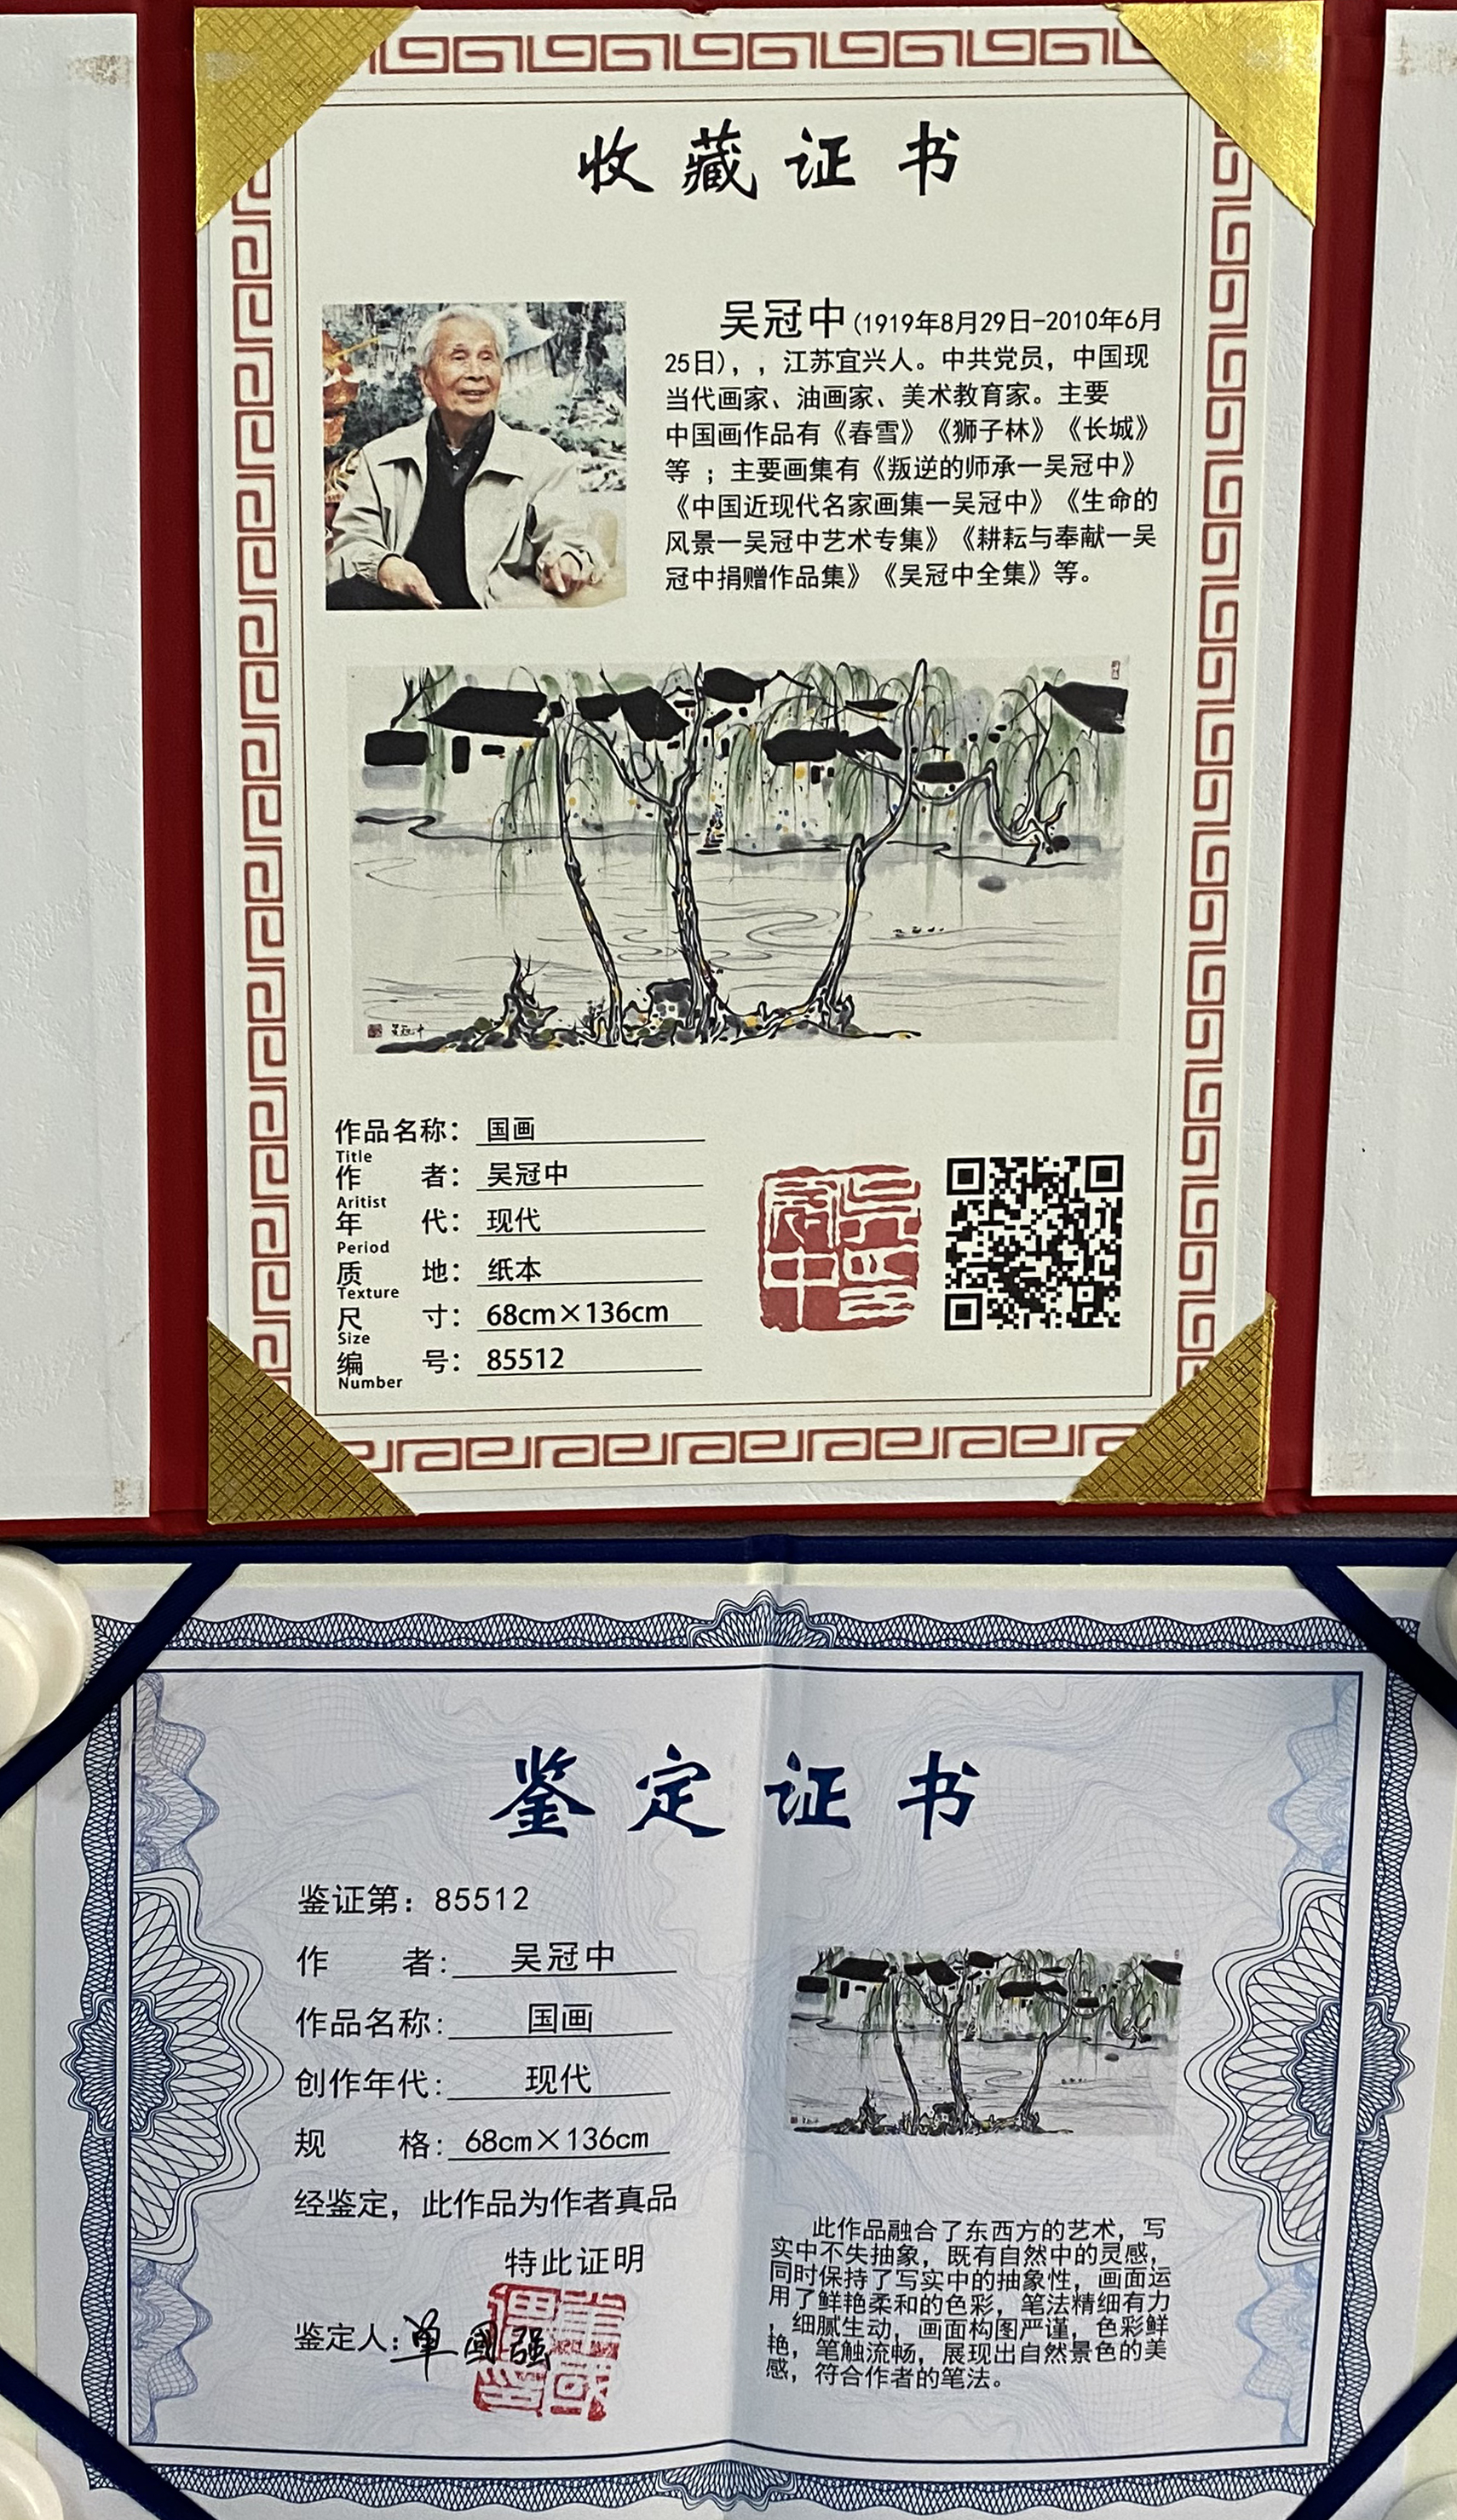 收藏证书
吴冠中(1919年8月29日-2010年6月
25日),，江苏宜兴人。中共党员，中国现
当代画家、油画家、美术教育家。主要
中国画作品有《春雪》《狮子林》《长城》
等 ；主要画集有《叛逆的师承一吴冠中》
《中国近现代名家画集一吴冠中》《生命的
风景一吴冠中艺术专集》《耕耘与奉献一吴
冠中捐赠作品集》《吴冠中全集》等。
吴冠中
作品名称： 国画
Title
作 者： 吴冠中
Aritist
年 代： 现代
Period
质 地： 纸本
Texture
尺 寸： 68cm×136cm
Size
编 号： 85512
Number
吴冠中印
鉴定证书
鉴证第：85512
作 者: 吴冠中
作品名称: 国画
创作年代: 现代
规 格: 68cm×136cm
经鉴定，此作品为作者真品
特此证明
鉴定人: 单國强
此作品融合了东西方的艺术，写
实中不失抽象，既有自然中的灵感，
同时保持了写实中的抽象性，画面运
用了鲜艳柔和的色彩，笔法精细有力
，细腻生动，画面构图严谨，色彩鲜
艳，笔触流畅，展现出自然景色的美
感，符合作者的笔法。